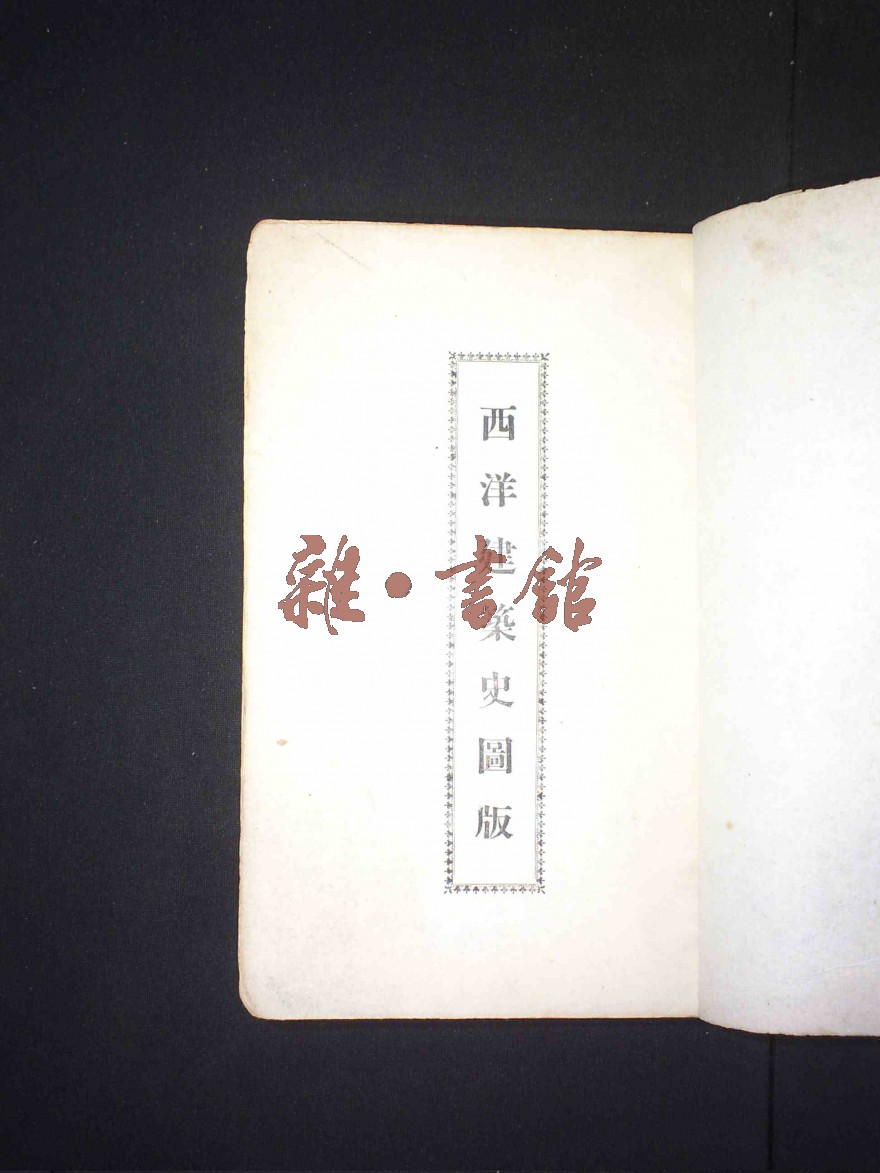 西洋建築史圖版
雜·書館